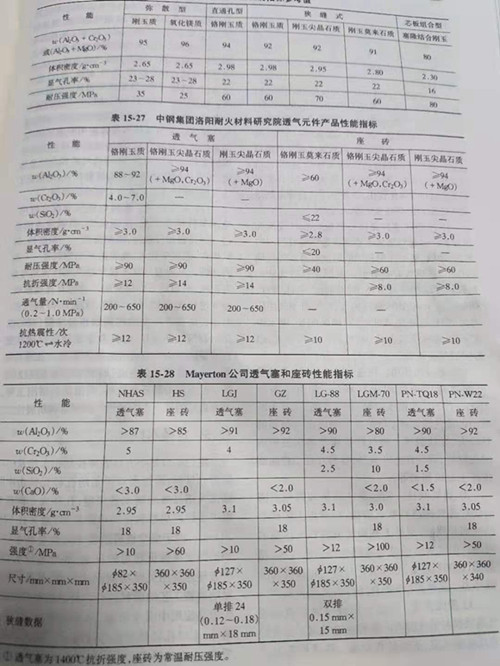 性 能 弥 散 型 直通孔型 狭 缝 式 芯板组合型
刚玉质 氧化镁质 铬刚玉质 铬刚玉质 刚玉尖晶石质 刚玉莫来石质 刚玉
w(Al₂O₃+Cr₂O₃)
或(Al₂O₃+MgO)/% 95 96 94 92 92 91 80
体积密度/g·cm⁻³ 2.65 2.65 2.98 2.98 2.95 2.80 2.30
显气孔率/% 23~28 23~28 22 22 22 22 16
耐压强度/MPa 35 25 60 60 70 60 80
表 15-27 中钢集团洛阳耐火材料研究院透气元件产品性能指标
性 能 透 气 塞 座 砖
铬刚玉质 铬刚玉尖晶石质 刚玉尖晶石质 铬莫来石质 铬刚玉尖晶石质 刚玉尖晶石质
w(Al₂O₃)/% 88~92 ≥94 (+MgO,Cr₂O₃) ≥94 (+MgO) ≥60 ≥94 (+MgO,Cr₂O₃) ≥94 (+MgO)
w(Cr₂O₃)/% 4.0~7.0 — — —
w(SiO₂)/% ≤22 — —
体积密度/g·cm⁻³ ≥3.0 ≥3.0 ≥3.0 ≥2.8 ≥3.0 ≥3.0
显气孔率/% ≤20 — —
耐压强度/MPa ≥90 ≥90 ≥90 ≥40 ≥60 ≥60
抗折强度/MPa ≥12 ≥14 ≥14 ≥8.0 ≥8.0
通气量/N·min⁻¹
(0.2~1.0 MPa) 200~650 200~650 200~650 — —
抗热震性/次
1200℃⇌水冷 ≥12 ≥12 ≥12 ≥10 ≥10 ≥10
表 15-28 Mayerton 公司透气塞和座砖性能指标
性 能 NHAS HS LGJ GZ LG-88 LGM-70 PN-TQ18 PN-W22
透气塞 座 砖 透气塞 座 砖 透气塞 座 砖 透气塞 座 砖
w(Al₂O₃)/% >87 >85 >91 >92 >90 >80 >90 >92
w(Cr₂O₃)/% 5 4 4.5 3.5 4.5
w(SiO₂)/% 2.5 10 1.5
w(CaO)/% <3.0 <3.0 <2.0 <2.0 <1.5 <2.0
体积密度/g·cm⁻³ 2.95 2.95 3.1 3.05 3.1 3.0 3.1 3.05
显气孔率/% 18 18 18 18 18
强度①/MPa >10 >60 >10 >50 >12 >100 >12 >50
尺寸/mm×mm×mm φ82× 360×360 φ127× 360×360 φ127× 360×360 φ127× 360×360
φ185×350 ×350 φ185×350 ×350 φ185×350 ×350 φ185×350 ×340
狭缝数据 单排 24 双排
(0.12~0.18) 0.15 mm×
mm×18 mm 15 mm
①透气塞为1400℃抗折强度,座砖为常温耐压强度。